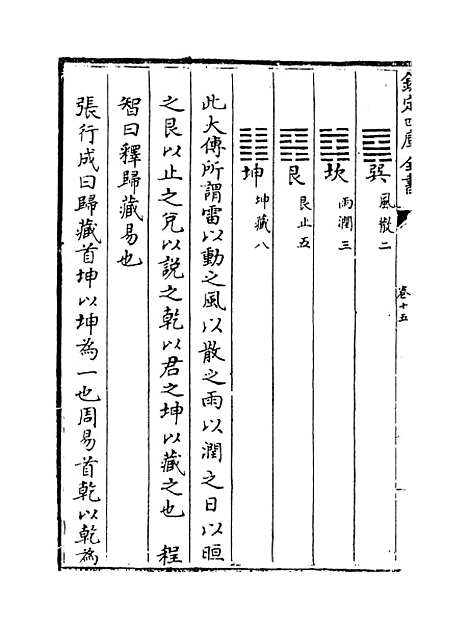 欽定四庫全書
卷十五
巽 風散二
坎 雨潤三
艮 艮止五
坤 坤藏八
此大傳所謂雷以動之風以散之雨以潤之日以晅
之艮以止之兌以説之乾以君之坤以藏之也 程
智曰釋歸藏易也
張行成曰歸藏首坤以坤為一也周易首乾以乾為